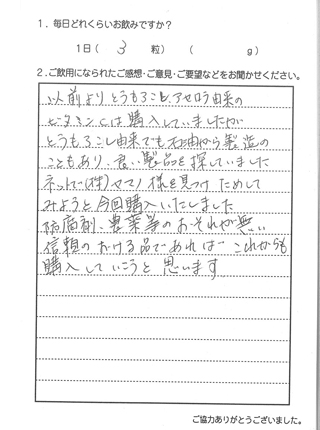 1．毎日どれくらいお飲みですか？
1日（ 3 粒）（ g）
2．ご飲用になられたご感想・ご意見・ご要望などをお聞かせください。
以前よりとうもろこし、アセロラ由来の
ビタミンCは購入していましたが
とうもろこし由来でも石油から製造の
こともあり、良い製品を探していました
ネットで(株)ヤマノ様を見つけ ためして
みようと今回購入いたしました
防腐剤、農薬等のおそれが無い
信頼のおける品であれば これからも
購入していこうと思います
ご協力ありがとうございました。